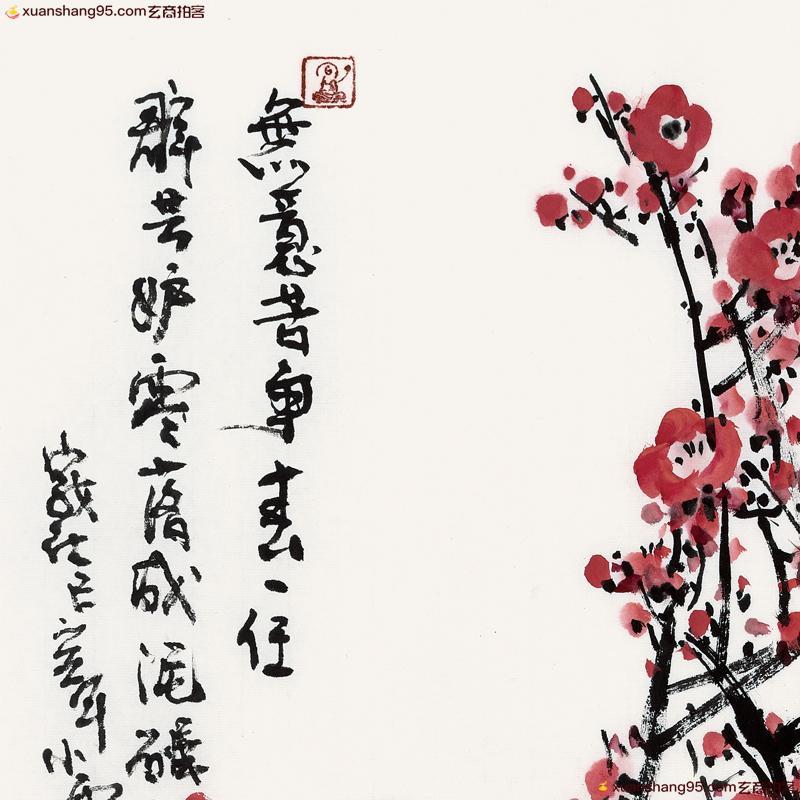 xuanshang95.com玄商拍客
無意苦争春一任
群芳妒零落成泥碾
歲在己亥年小
xuanshang95.com玄商拍客